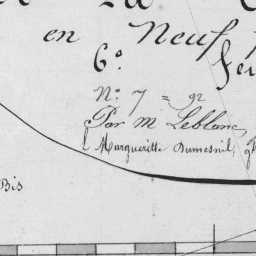 en Neuf
6º
Nº 7 = 92
Par M Leblanc,
Margueritte Dumesnil,
Bis